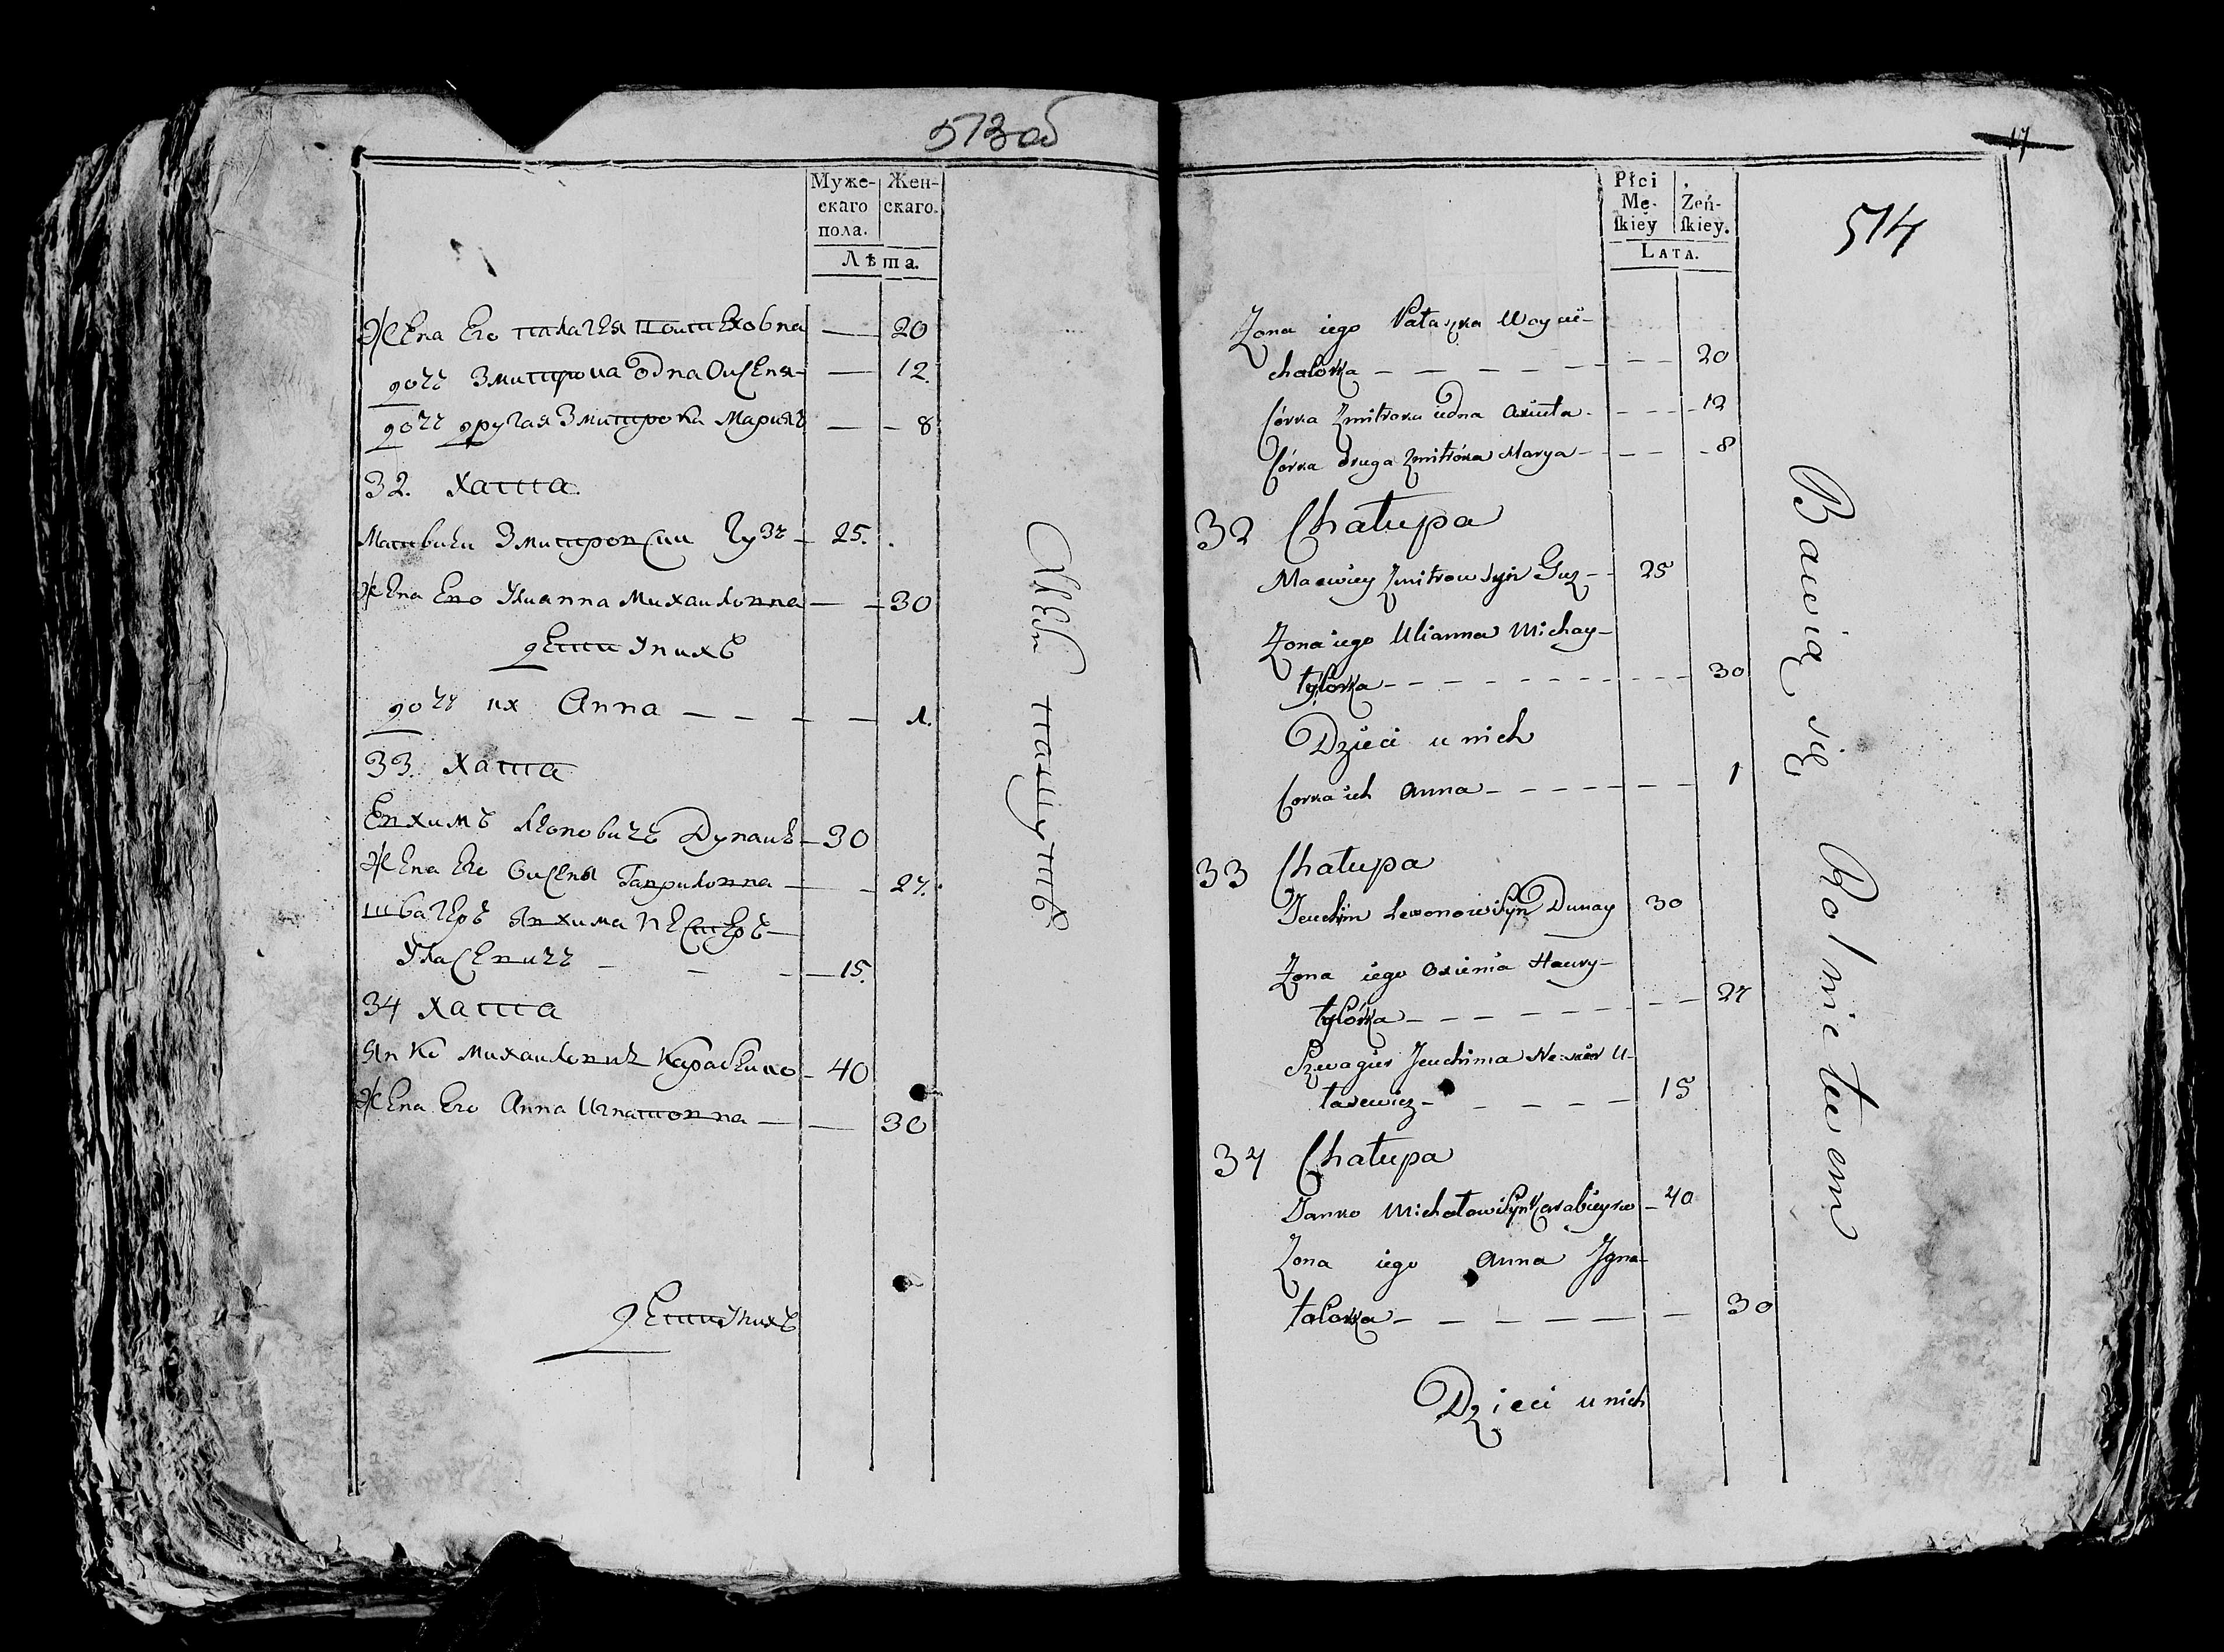 573 об
Муже-
скаго
пола.
Жен-
скаго.
Лѣта.
Жена Его палагея 20
дочь Змитрока одна Оисеня 12.
дочь другая Змитрока Маріяъ 8
32. Хатта.
Матвѣи Змитровсии Гузъ 25.
Жена Его Улианна Михаиловна 30
дѣти У нихъ
дочь их Анна 1.
33. Хатта
Евхимъ Леоновичъ Дунаиъ 30
Жена Его Оисеня Гаврилонна 27.
швагеръ Явхима Нестеръ
Уласевичъ 15.
34 Хатта
Янко Михаиловичъ Карабеико 40
Жена Его Анна Игнатовна 30
дѣти У нихъ
Хлѣбъ пашутъ
17
514
Płci
Mę-
skiey
Żeń-
skiey.
LATA.
Zona iego Pałaszka Woycie-
chowka 20
Córka Zmitroka iedna Axieta 12
Córka druga Zmitroka Marya 8
32 Chałupa
Macwiey Zmitrow Syn Guz 25
Zona iego Ulianna Michay-
łowka 30
Dzieci u nich
Corka ich Anna 1
33 Chałupa
Jeuchim Lewonowi Syn Dunay 30
Zona iego Oxienia Hawry-
łowka 27
Szwagier Jeuchima Nescier U-
łasewicz 15
34 Chałupa
Janko Michałowi Syn Karabieyko 40
Zona iego Anna Jgna-
towka 30
Dzieci u nich
Bawią się Rolnictwem